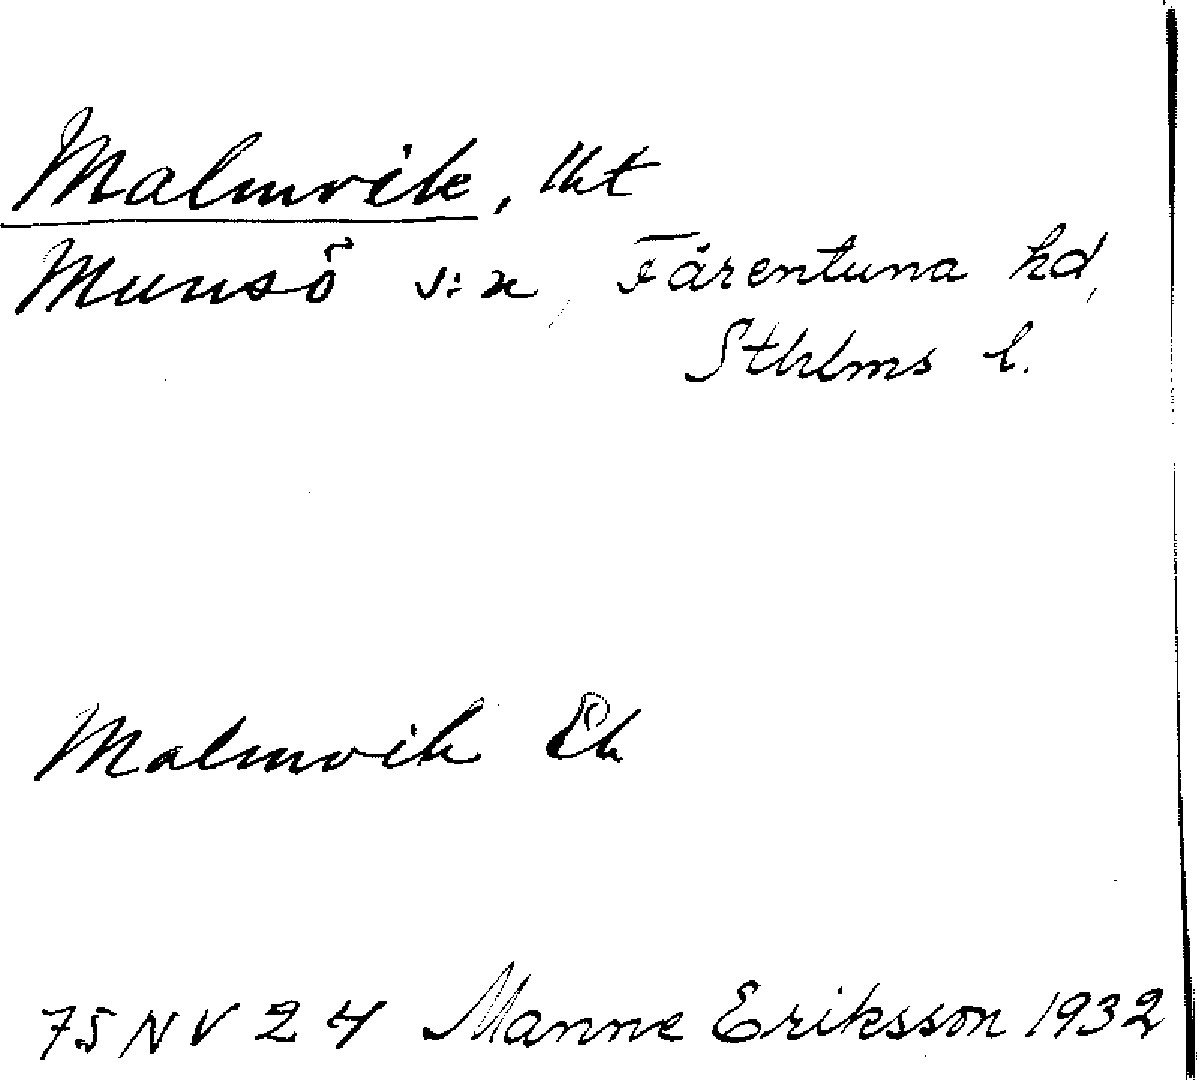 Malmvik, lht
Munsö s:n, Färentuna hd,
Sthlms l.
Malmvik Ek
75 NV 24 Manne Eriksson 1932